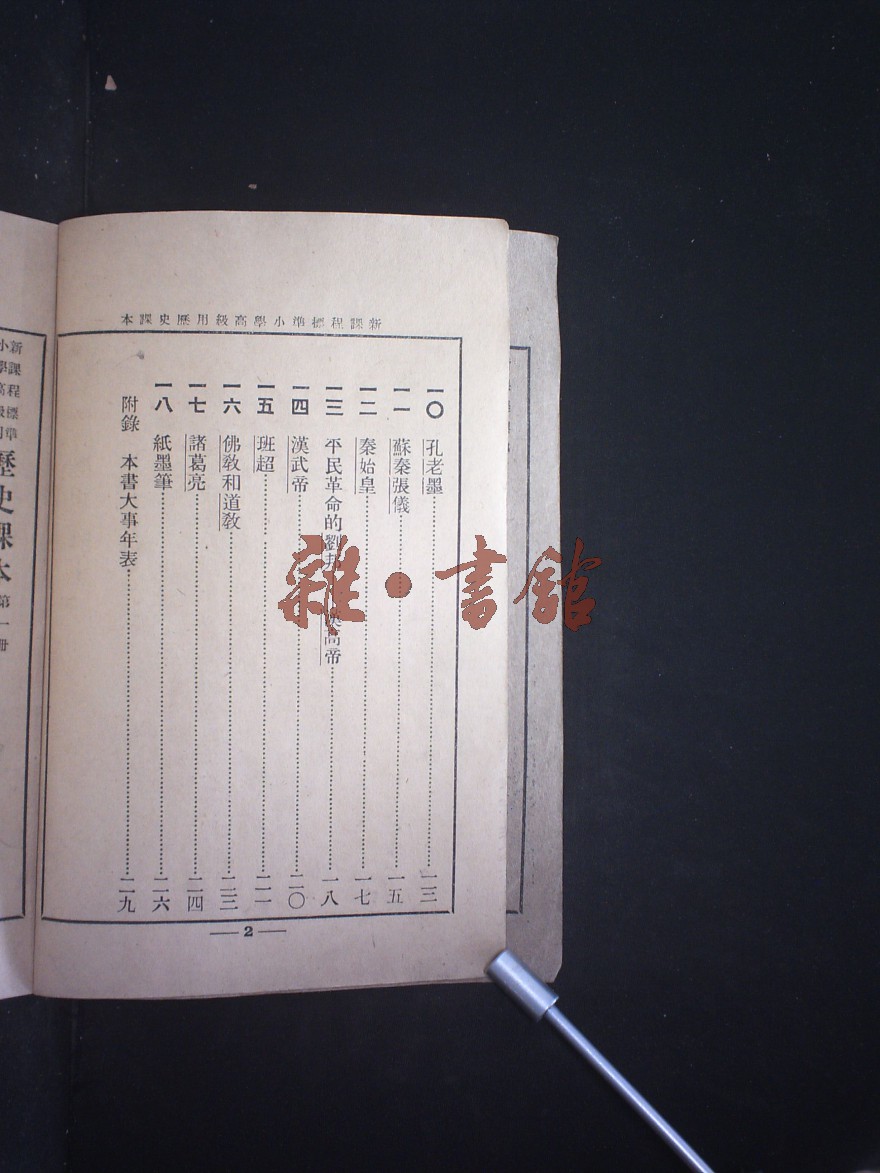 新課程標準小學高級用歷史課本
一〇 孔老墨……一三
一一 蘇秦張儀……一五
一二 秦始皇……一七
一三 平民革命的劉邦 漢高帝……一八
一四 漢武帝……二〇
一五 班超……二一
一六 佛教和道教……二三
一七 諸葛亮……二四
一八 紙墨筆……二六
附錄 本書大事年表……二九
2
新課程標準
小學高級用
歷史課本 第一冊
雜·書館